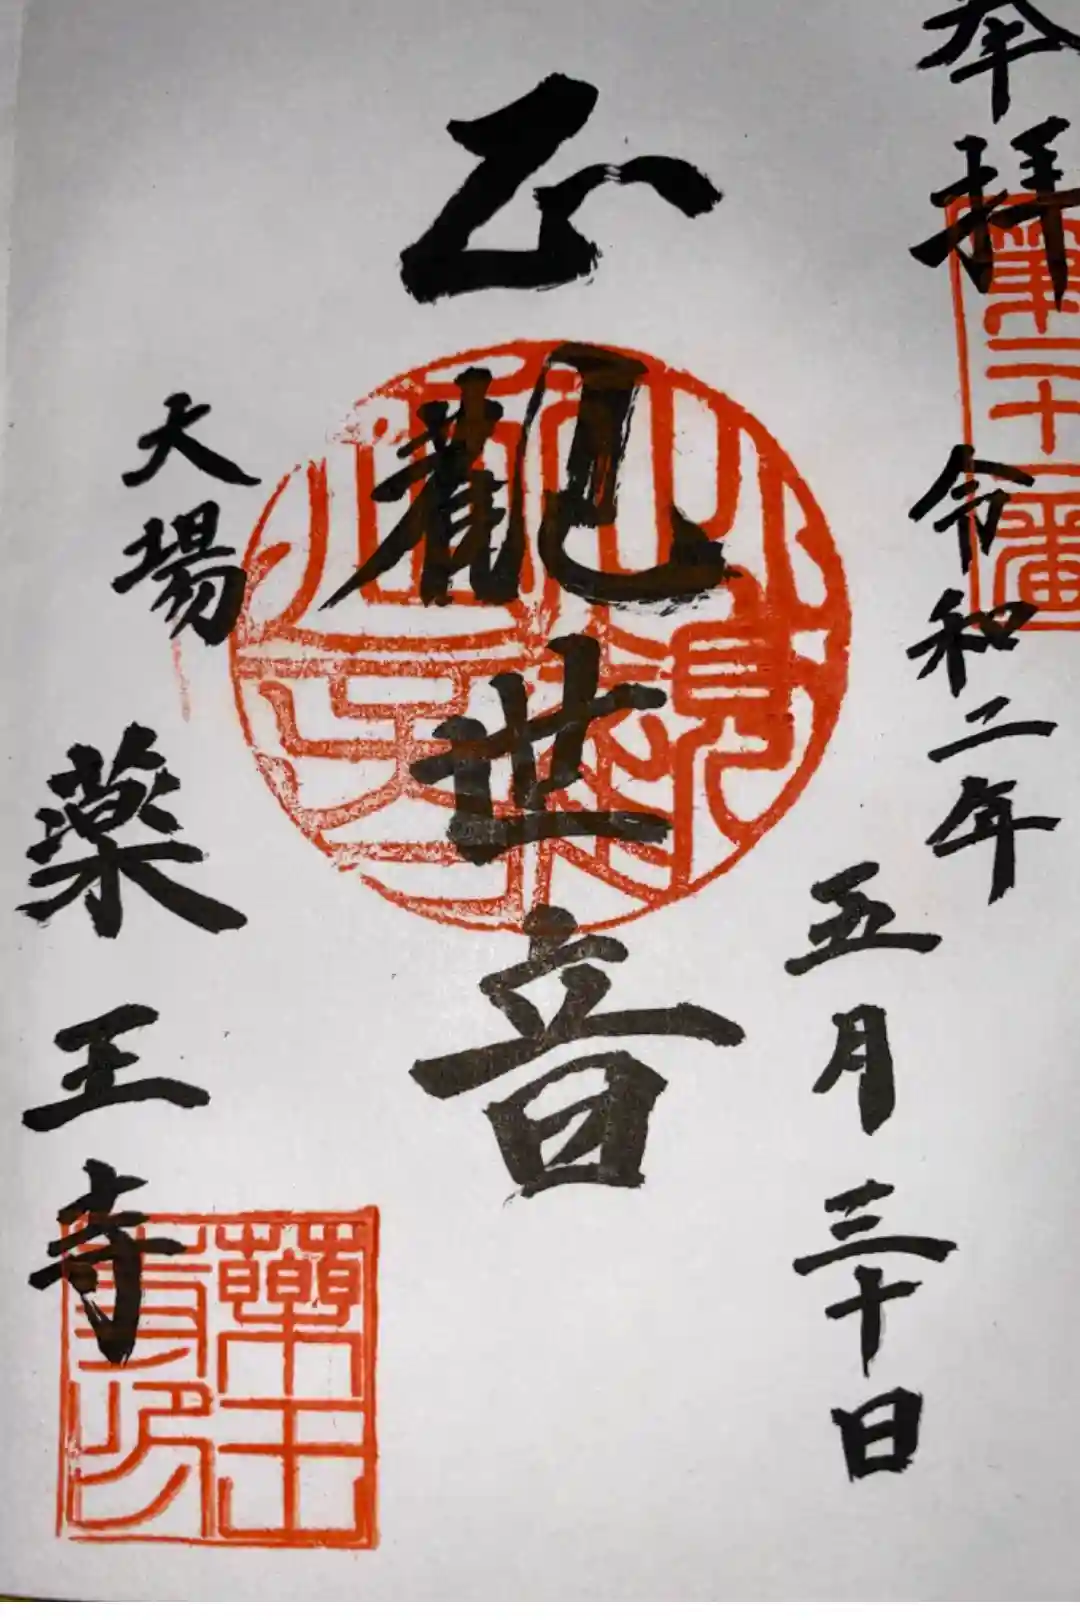 奉拝
第二十番
令和二年
五月三十日
正觀世音
大場
薬王寺
藥王
寺印